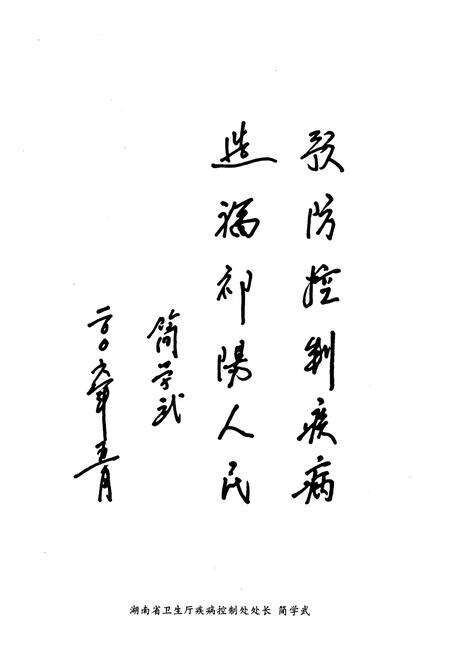 预防控制疾病
造福祁陽人民
简学武
二〇〇六年五月
湖南省卫生厅疾病控制处处长 简学武